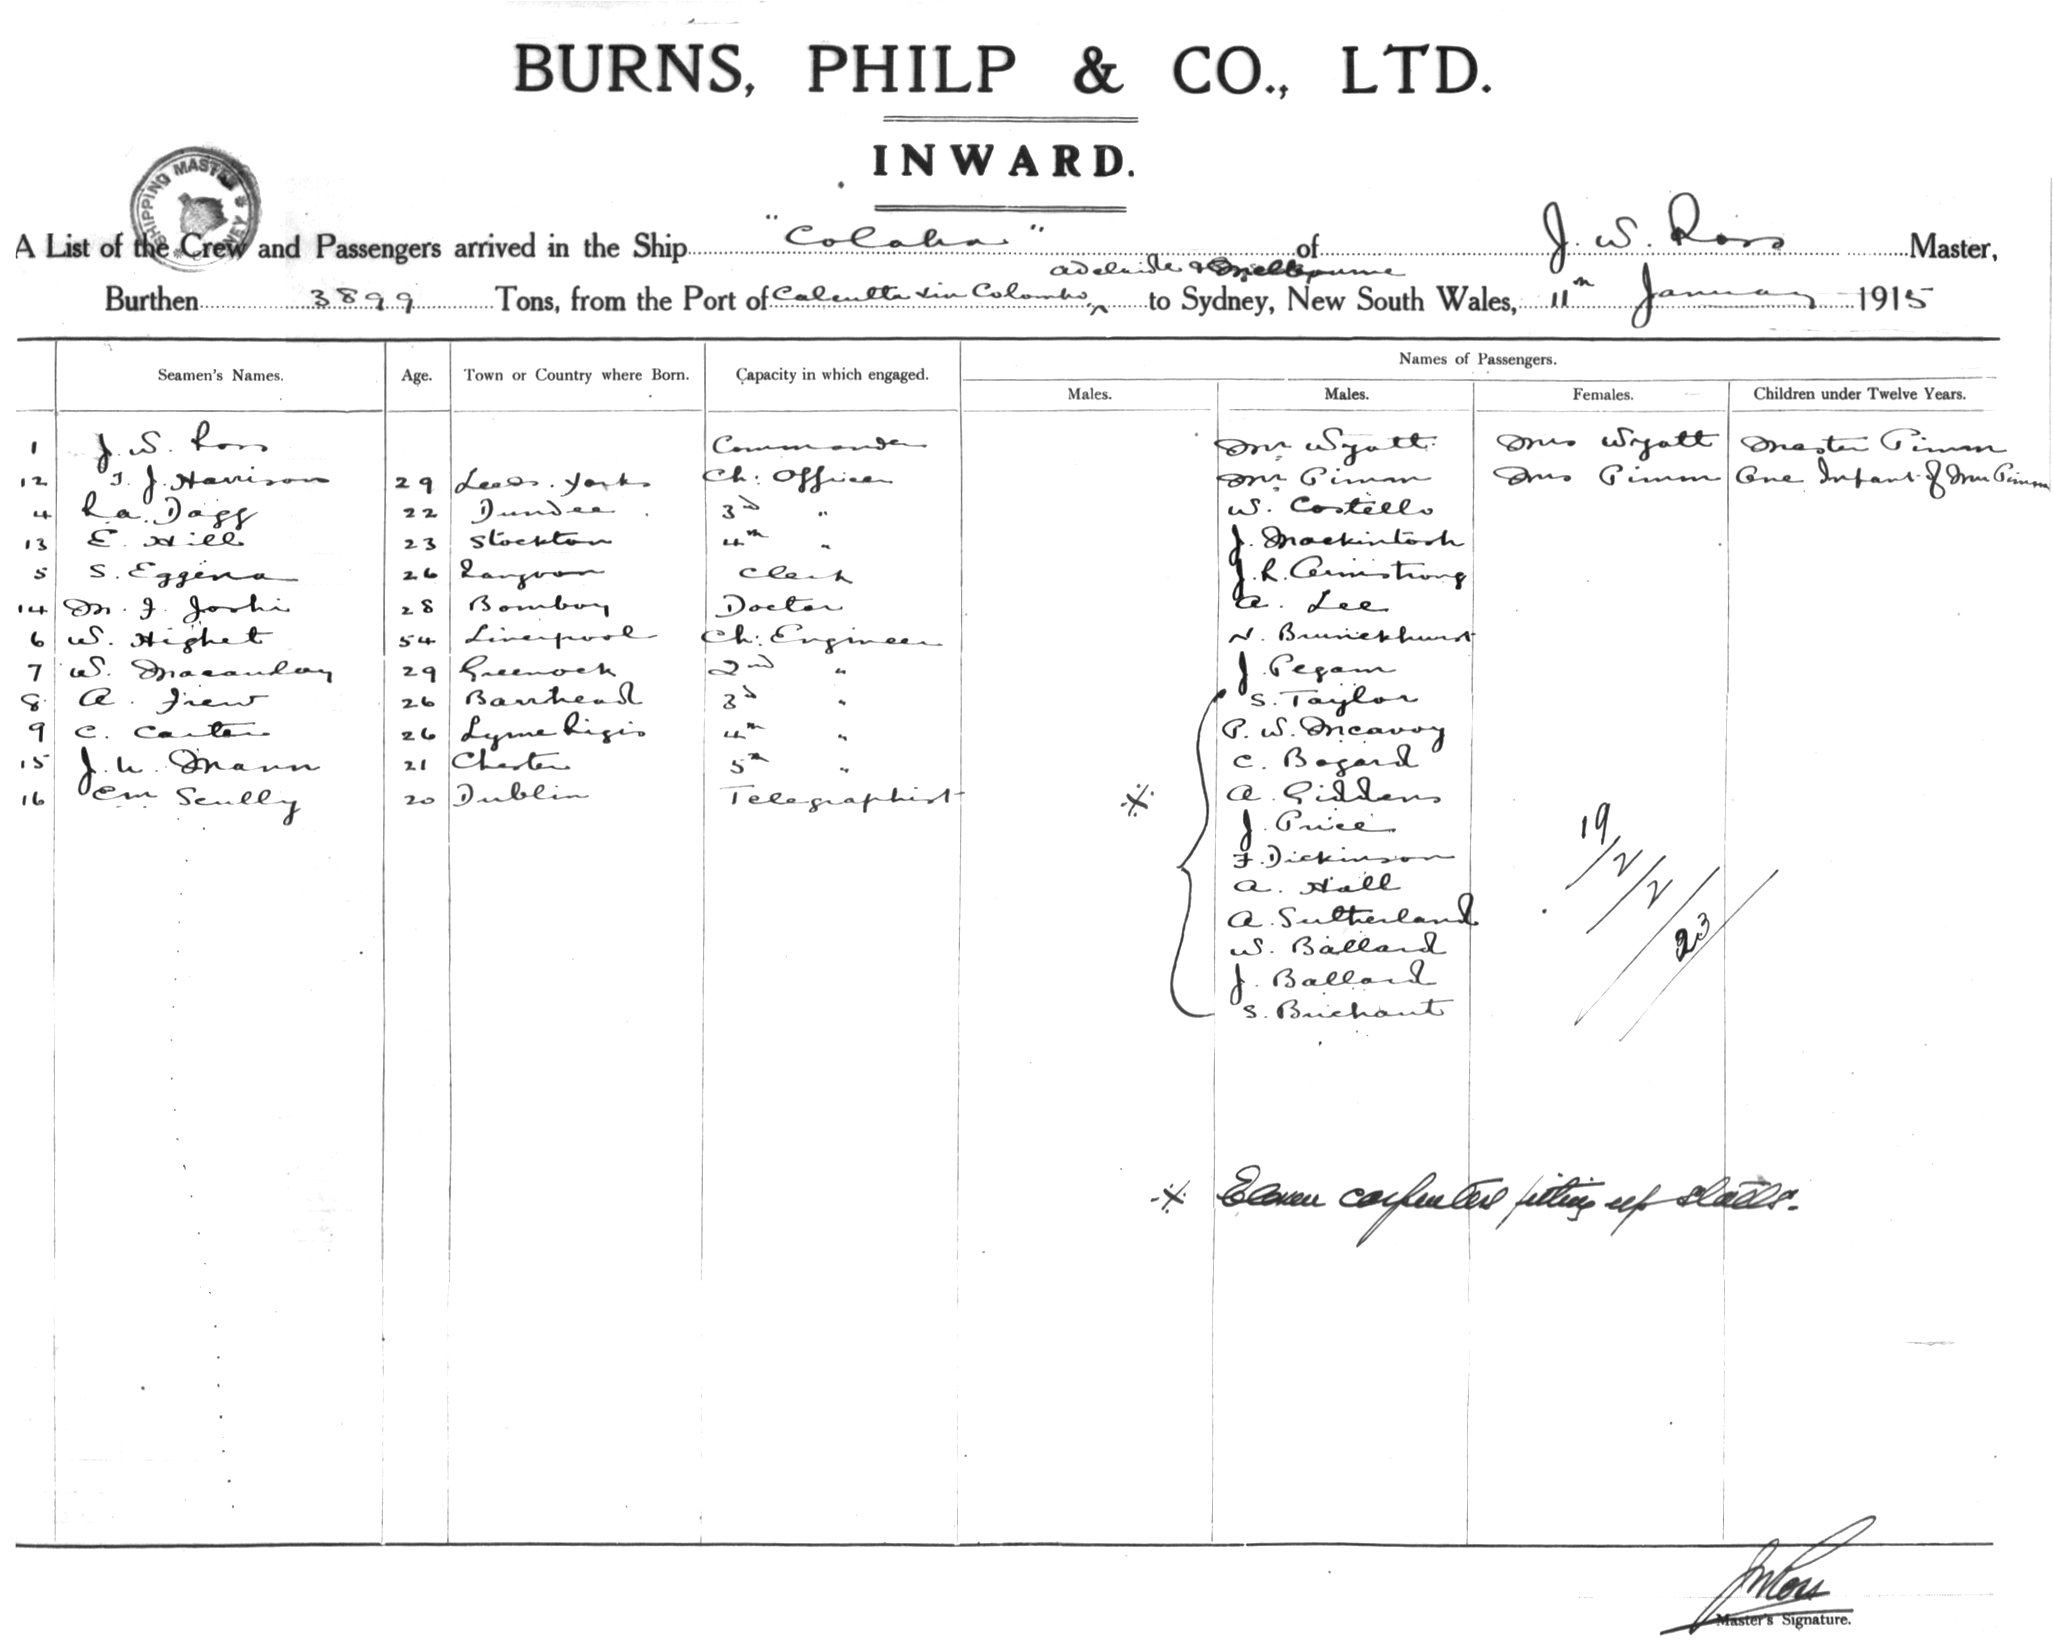 BURNS, PHILP & CO., LTD.
INWARD.
SHIPPING MASTER SYDNEY
A List of the Crew and Passengers arrived in the Ship "Colaba" of J. W. Ross Master,
Adelaide & Melbourne
Burthen 3899 Tons, from the Port of Calcutta via Colombo ^ to Sydney, New South Wales, 11th January 1915
Names of Passengers.
Seamen's Names. Age. Town or Country where Born. Capacity in which engaged. Males. Males. Females. Children under Twelve Years.
1 J. W. Ross Commander Mr Wyatt Mrs Wyatt Master Pimm
12 J. Harrison 29 Leeds. Yorks Ch: Officer Mr Pimm Mrs Pimm One Infant of Mrs Pimm
4 R a. Dagg 22 Dundee 3rd " W. Costello
13 E. Hill 23 Stockton 4th " J. Mackintosh
5 S. Eggena 26 Rangoon Clerk J. R. Armstrong
14 M. J. Joshi 28 Bombay Doctor A. Lee
6 W. Highet 54 Liverpool Ch: Engineer N. Brunckhurst
7 W. Macaulay 29 Greenock 2nd " J. Pegam
8 A. Frew 26 Barrhead 3rd " S. Taylor
9 C. Carter 26 Lyme Rigis 4th " P. W. McAvoy
15 J. Mann 21 Chester 5th " C. Bogard
16 Scully 20 Dublin Telegraphist A. Giddens
※ J. Price
F. Dickinson
A. Hall
A. Sutherland
W. Ballard
J. Ballard
S.
19/2/2/23
※ Eleven carpenters fitting up stalls.
J W Ross
Master's Signature.